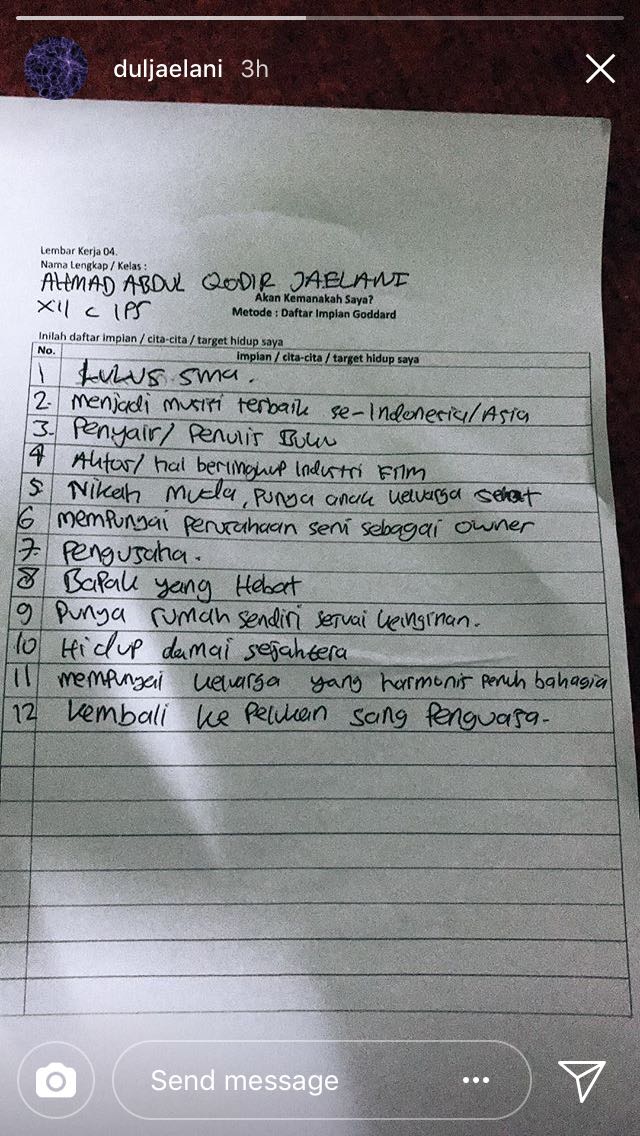 duljaelani 3h
Lembar Kerja 04.
Nama Lengkap / Kelas :
AHMAD ABDUL QODIR JAELANI
Akan Kemanakah Saya?
XII C IPS
Metode : Daftar Impian Goddard
Inilah daftar impian / cita-cita / target hidup saya
No. impian / cita-cita / target hidup saya
1 LULUS SMA.
2. menjadi musisi terbaik se-Indonesia/Asia
3. Penyair/ Penulis Buku
4 Aktor/ hal beringkup Industri Film
5. Nikah Muda, Punya anak keluarga sehat
6 mempunyai perusahaan seni sebagai owner
7. Pengusaha.
8 Bapak yang Hebat
9 Punya rumah sendiri sesuai keinginan.
10 Hidup damai sejahtera
11 mempunyai keluarga yang harmonis penuh bahagia
12 kembali ke Pelukan sang Penguasa.
Send message